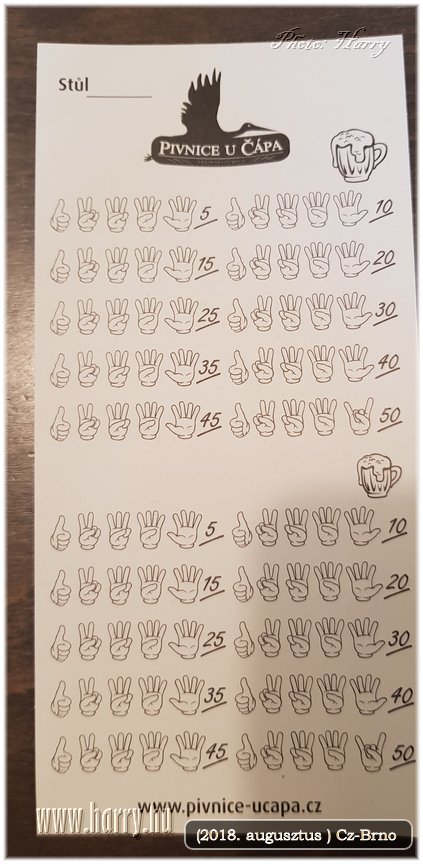 Photo: Harry
Stůl
PIVNICE U ČÁPA
5 10
15 20
25 30
35 40
45 50
5 10
15 20
25 30
35 40
45 50
www.pivnice-ucapa.cz
www.harry.hu
(2018. augusztus ) Cz-Brno